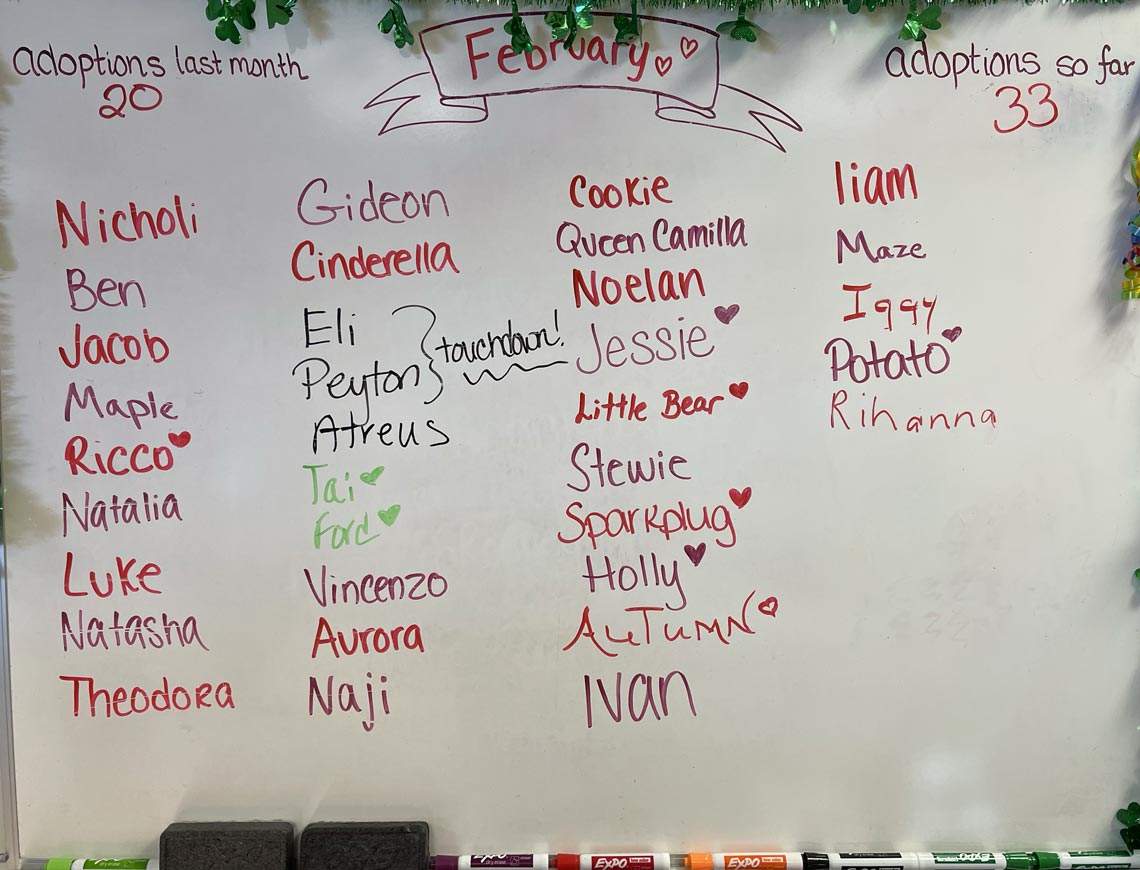 February
adoptions last month
20
adoptions so far
33
Nicholi
Ben
Jacob
Maple
Ricco
Natalia
Luke
Natasha
Theodora
Gideon
Cinderella
Eli
Peyton
touchdown!
Atreus
Tai
Ford
Vincenzo
Aurora
Naji
Cookie
Queen Camilla
Noelan
Jessie
Little Bear
Stewie
Sparkplug
Holly
AuTumN
Ivan
liam
Maze
Iggy
Potato
Rihanna
EXPO
EXPO
EXPO
EXPO